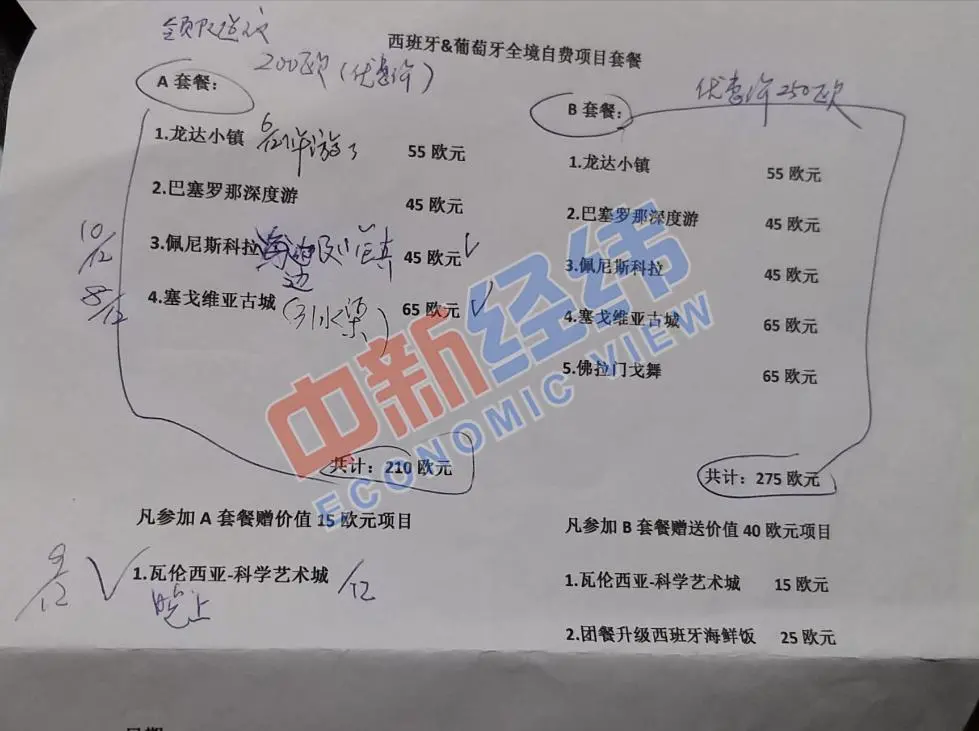 西班牙&葡萄牙全境自费项目套餐
200欧（优惠价）
优惠价250欧
A 套餐：
1.龙达小镇 55 欧元
6/12 游了
2.巴塞罗那深度游 45 欧元
10/12
3.佩尼斯科拉 海边 小镇 45 欧元 √
8/12
4.塞戈维亚古城 (引水渠) 65 欧元 √
共计：210 欧元
凡参加 A 套餐赠价值 15 欧元项目
9/12 √
1.瓦伦西亚-科学艺术城 /12
晚上
B 套餐：
1.龙达小镇 55 欧元
2.巴塞罗那深度游 45 欧元
3.佩尼斯科拉 45 欧元
4.塞戈维亚古城 65 欧元
5.佛拉门戈舞 65 欧元
共计：275 欧元
凡参加 B 套餐赠送价值 40 欧元项目
1.瓦伦西亚-科学艺术城 15 欧元
2.团餐升级西班牙海鲜饭 25 欧元
中新经纬
ECONOMIC VIEW